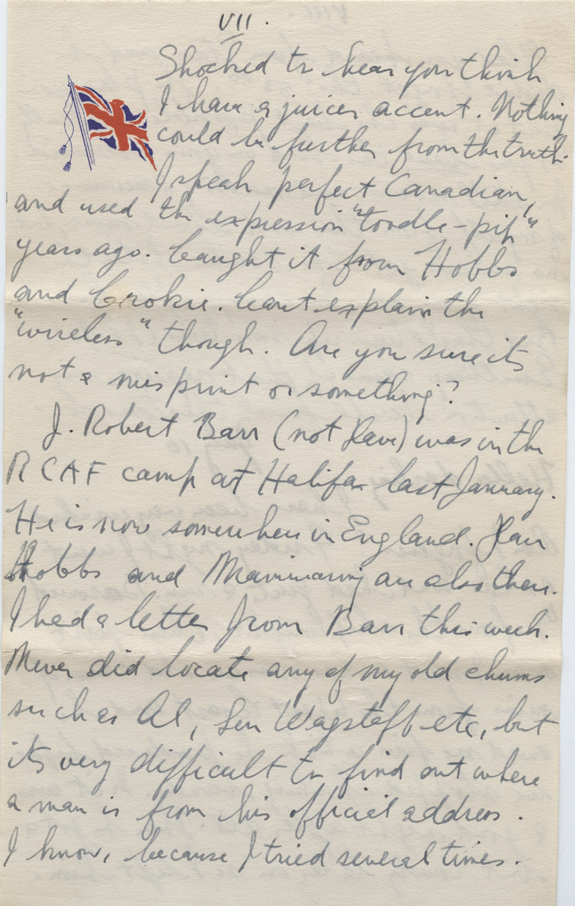 VII.
Shocked to hear you think
I have a juicer accent. Nothing
could be further from the truth.
I speak perfect Canadian,
and used the expression "toodle-pip"
years ago. Caught it from Hobbs
and Crokie. Can't explain the
"wireless" though. Are you sure its
not a misprint or something?
J. Robert Barr (not Dave) was in the
RCAF camp at Halifax last January.
He is now somewhere in England.
Hobbs and are also there.
I had a letter from Barr this week.
Never did locate any of my old chums
such as Al, Len Wagstaff etc, but
its very difficult to find out where
a man is from his official address.
I know, because I tried several times.